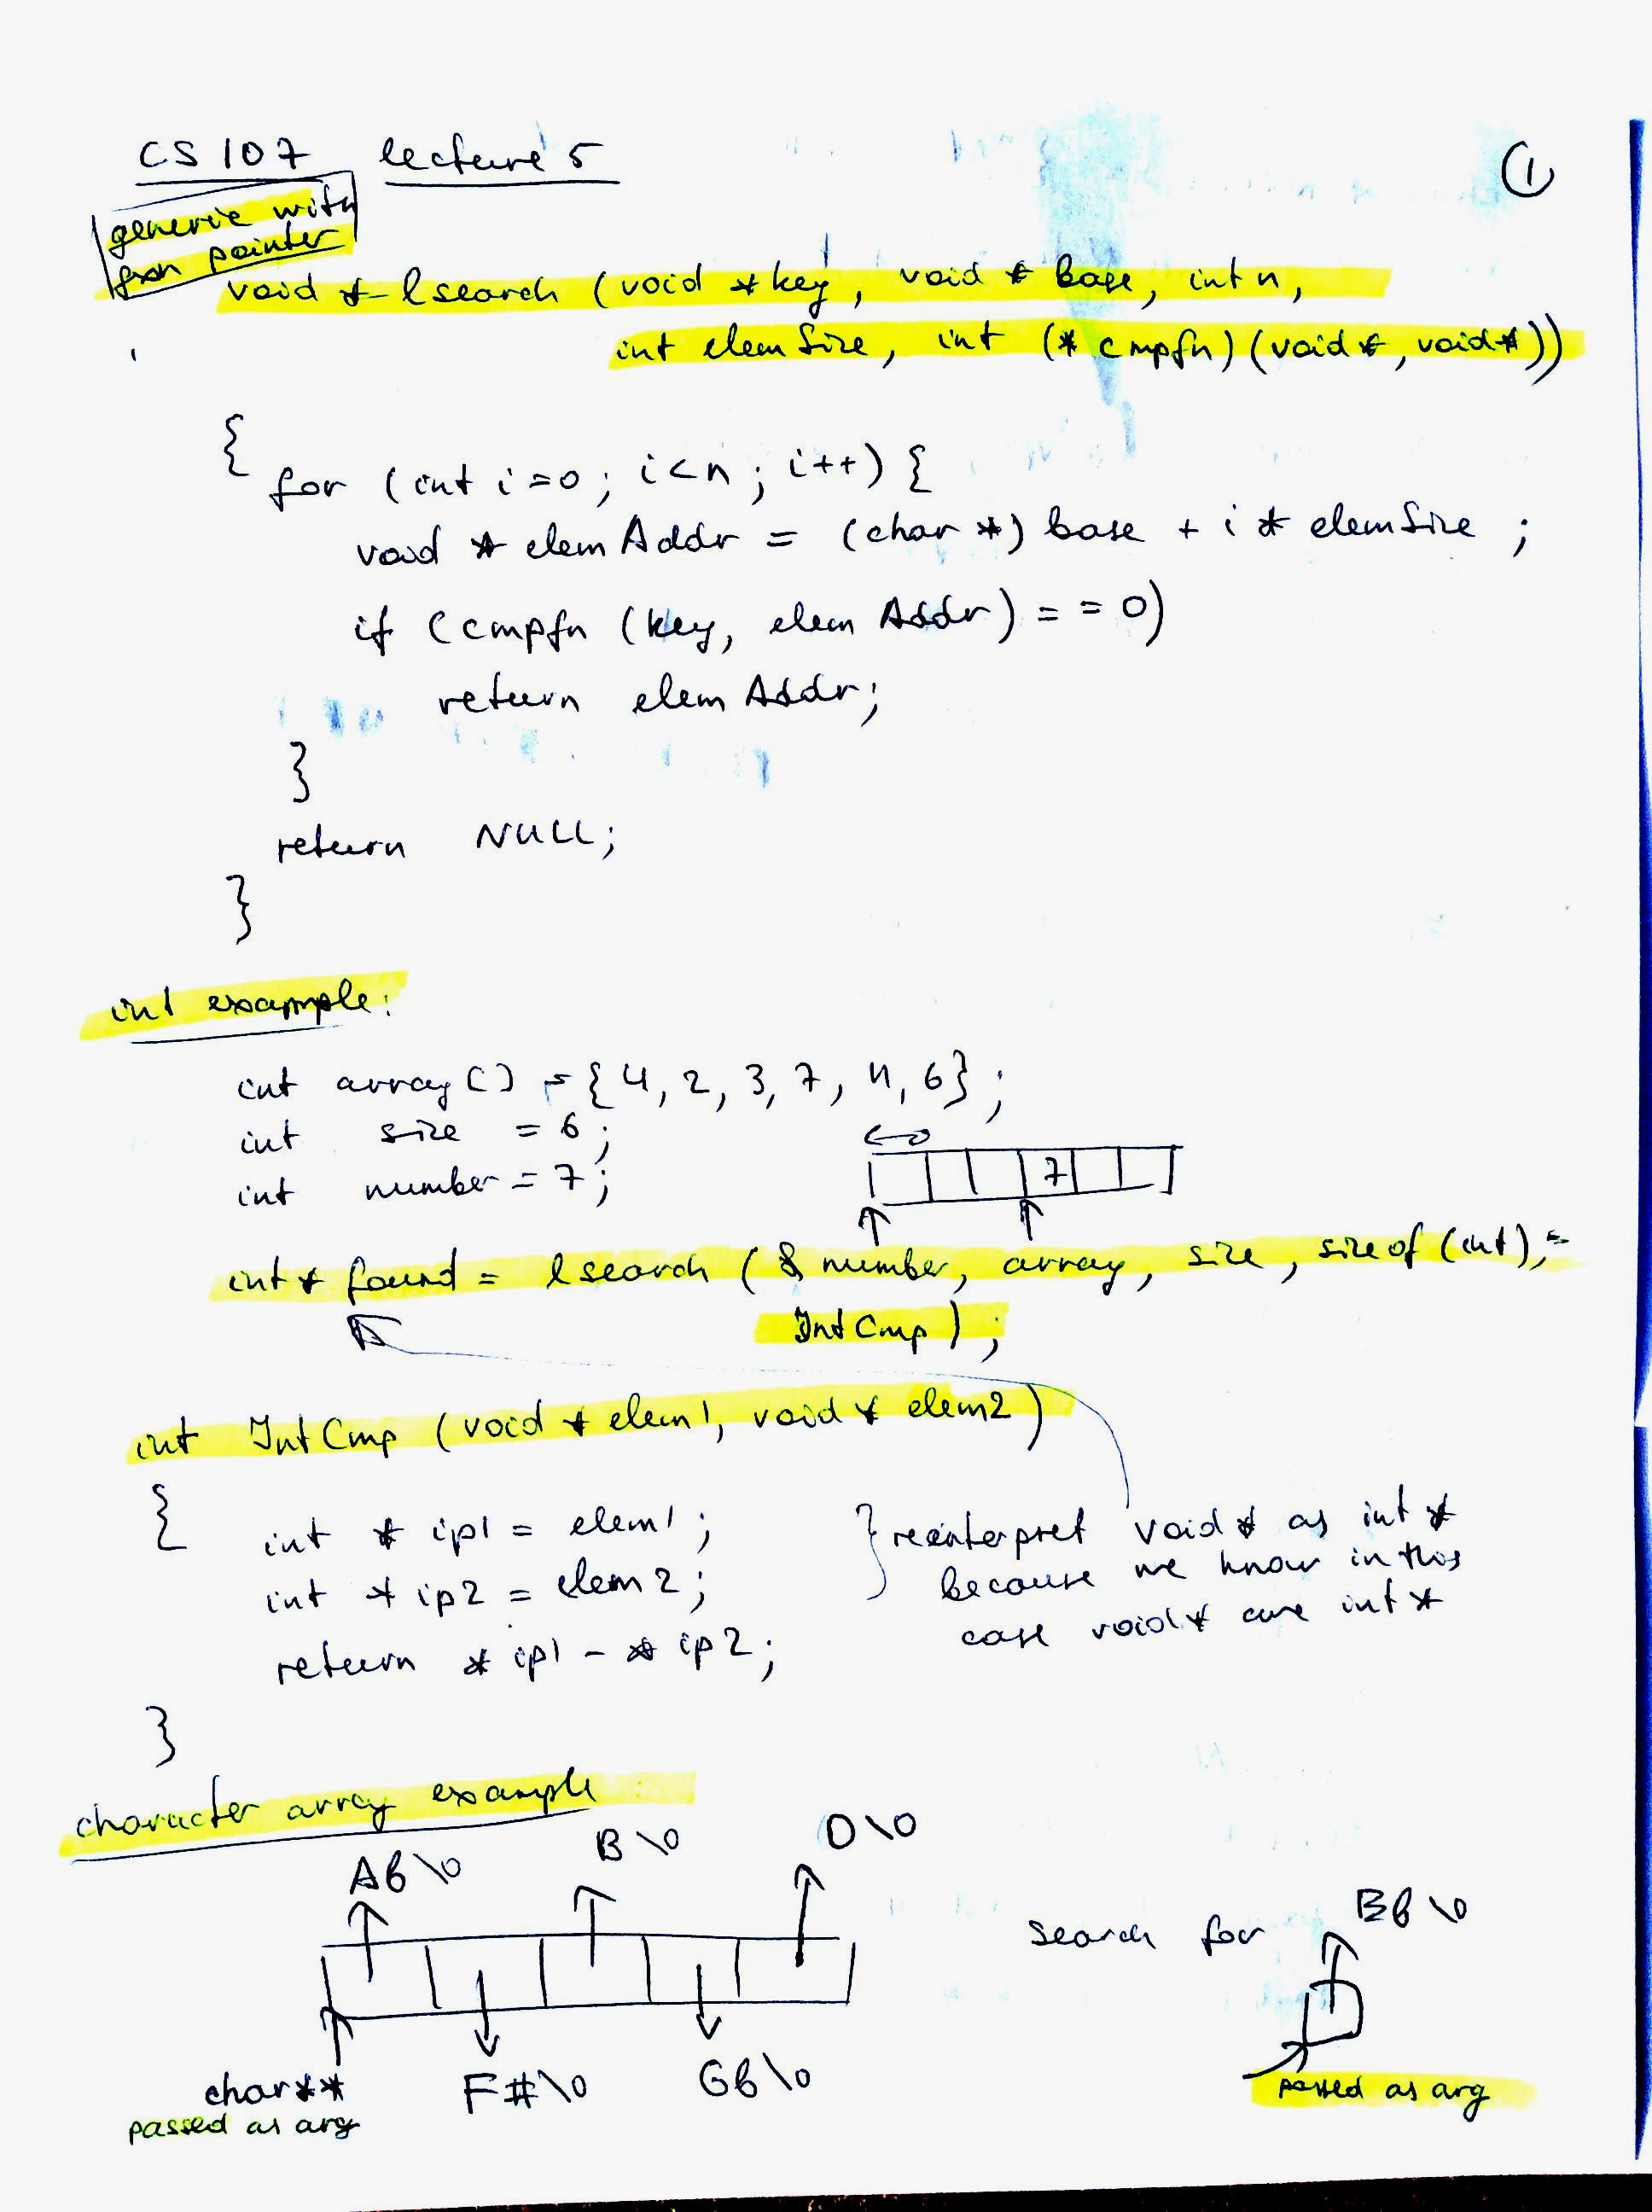 CS 107 lecture 5
①
generic with
fxn pointer
void * lsearch (void *key, void * base, int n,
int elemSize, int (* cmpfn)(void*, void*))
{
for (int i=0; i<n; i++) {
void * elemAddr = (char *) base + i * elemSize ;
if (cmpfn (key, elemAddr) == 0)
return elemAddr;
}
return NULL;
}
int example:
int array[] = {4, 2, 3, 7, 11, 6};
int size = 6;
int number = 7;
7
int * found = lsearch (& number, array, size, sizeof (int),
IntCmp);
int IntCmp (void * elem1, void * elem2)
{ int * ip1 = elem1;
int * ip2 = elem2;
return * ip1 - * ip2;
}
} reinterpret void * as int *
because we know in this
case void * are int *
character array example
Ab\0 B\0 D\0
search for Bb\0
char** F#\0 Gb\0
passed as arg
passed as arg